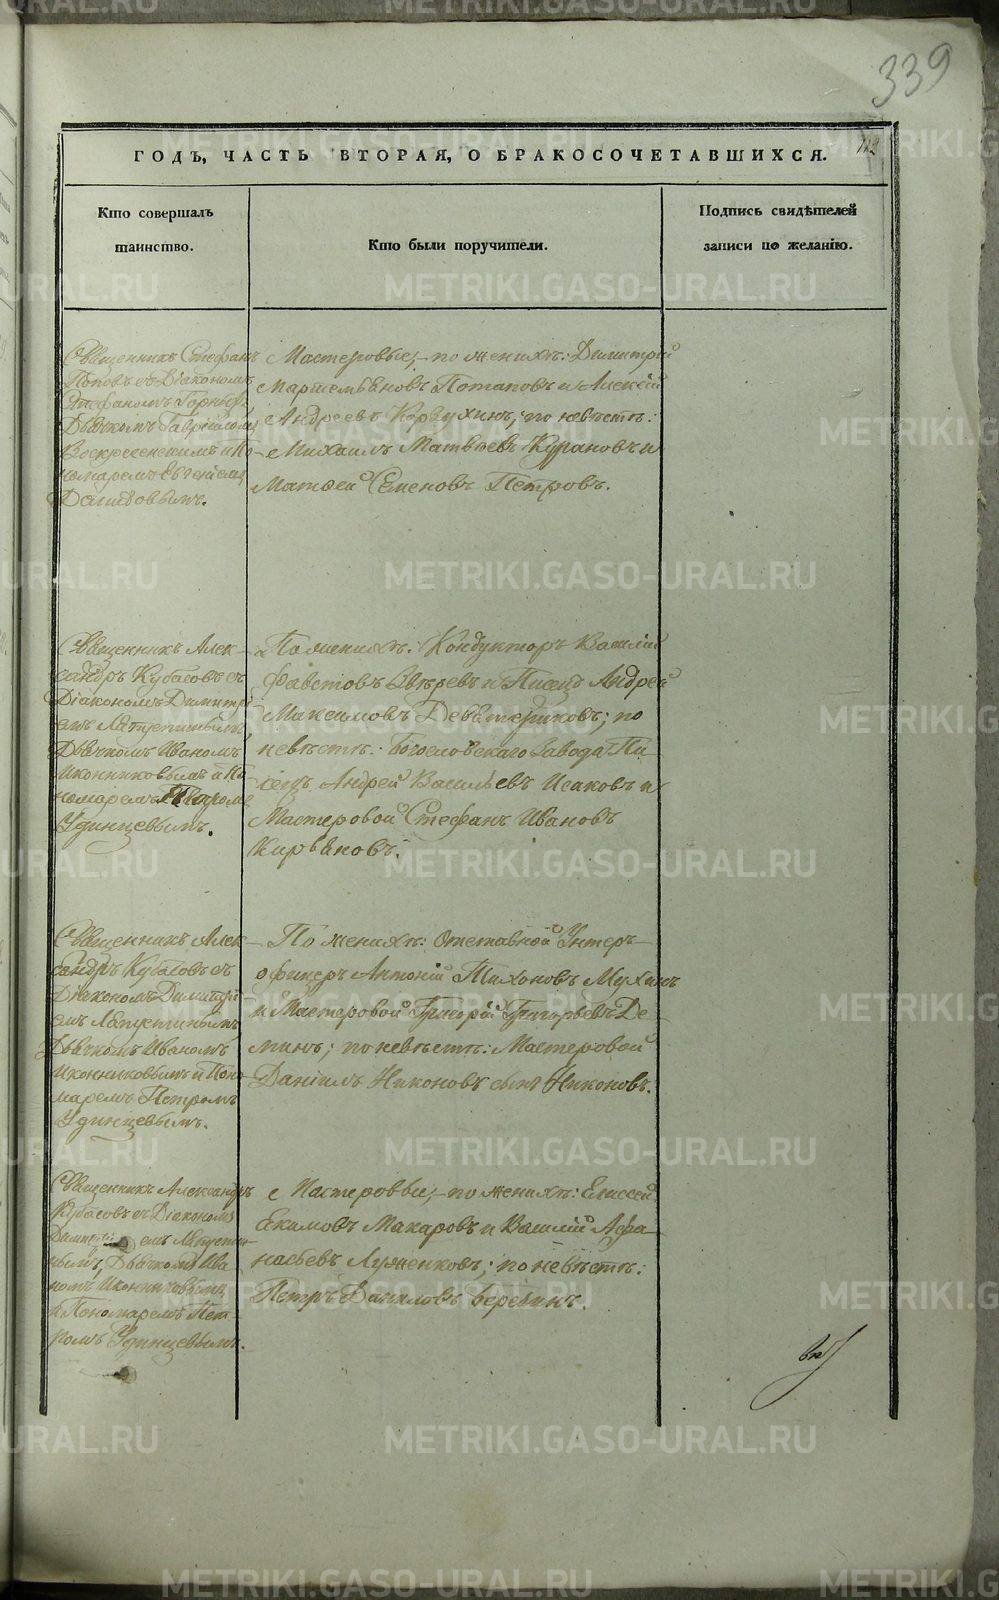 339
112
ГОДЪ, ЧАСТЬ ВТОРАЯ, О БРАКОСОЧЕТАВШИХСЯ.
Кто совершалъ
таинство.
Кто были поручители.
Подпись свидѣтелей
записи по желанію.
Священникъ Стефанъ
Поповъ съ Діакономъ
Стефаномъ
Дьячкомъ Гавріиломъ
Воскресенскимъ и По-
номаремъ Евгеніемъ
Давидовымъ.
Мастеровые, по женихѣ: Димитрій
Мартемьяновъ Потаповъ и Алексій
Андреевъ; по невѣстѣ:
Михаилъ Матвѣевъ Курановъ и
Матѳей Семеновъ Петровъ.
Священникъ Алек-
сандръ Кубасовъ съ
Діакономъ Димитрі-
емъ Ляпустинымъ
Дьячкомъ Иваномъ
Иконниковымъ и По-
номаремъ Петромъ
Удинцевымъ.
По женихѣ: Кондукторъ Василій
Фавстовъ Звѣревъ и Писецъ Андрей
Максимовъ; по
невѣстѣ: Богословскаго Завода Пи-
сецъ Андрей Васильевъ Исаковъ и
Мастеровой Стефанъ Ивановъ
Кирьяновъ.
Священникъ Алек-
сандръ Кубасовъ съ
Діакономъ Димитрі-
емъ Ляпустинымъ
Дьячкомъ Иваномъ
Иконниковымъ и Поно-
маремъ Петромъ
Удинцевымъ.
По женихѣ: Отставной Унтеръ-
офицеръ Антоній Тихоновъ Мухинъ
и Мастеровой Григорій Григорьевъ Де-
минъ; по невѣстѣ: Мастеровой
Даніилъ Никоновъ сынъ Никоновъ.
Священникъ Александръ
Кубасовъ съ Діакономъ
Димитріемъ Ляпусти-
нымъ, Дьячкомъ Ива-
номъ Иконниковымъ
и Пономаремъ Пет-
ромъ Удинцевымъ.
Мастеровые, по женихѣ: Елисей
Екимовъ Макаровъ и Василій Афа-
насьевъ Луженковъ; по невѣстѣ:
Петръ Даниловъ Березинъ.
METRIKI.GASO-URAL.RU